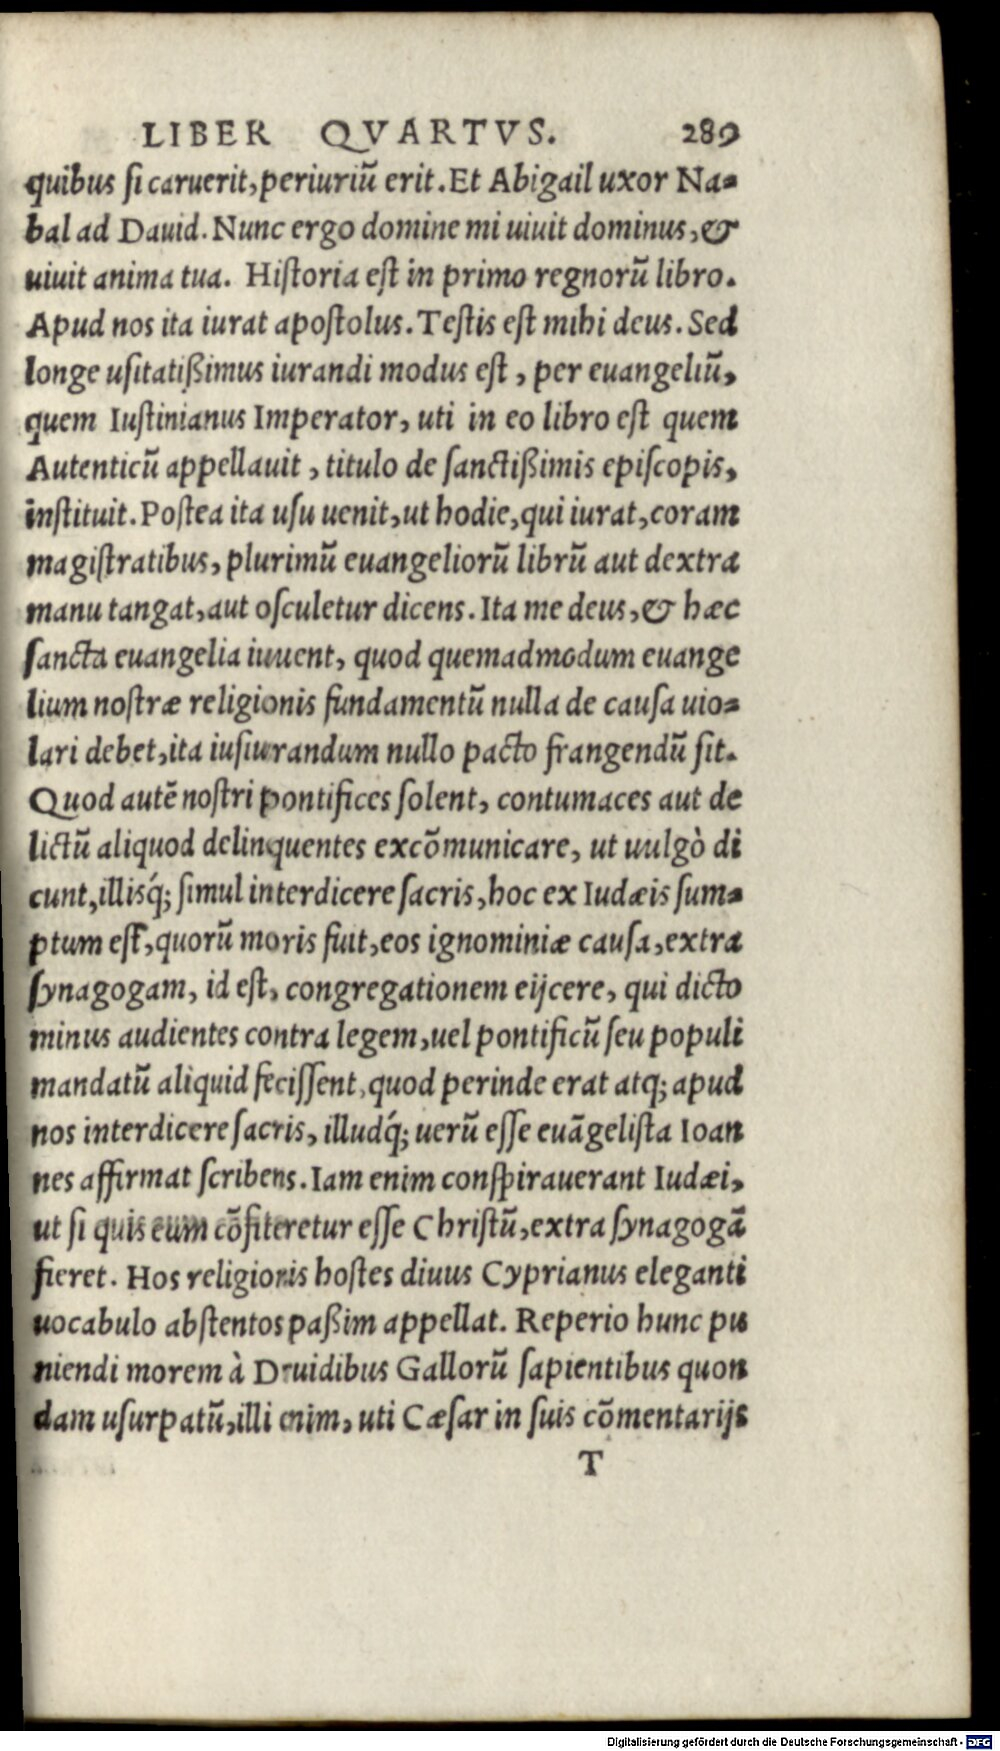 LIBER QVARTVS. 289
quibus ſi caruerit, periuriũ erit. Et Abigail uxor Na-
bal ad Dauid. Nunc ergo domine mi uiuit dominus, &
uiuit anima tua. Hiſtoria eſt in primo regnorũ libro.
Apud nos ita iurat apoſtolus. Teſtis eſt mihi deus. Sed
longe uſitatißimus iurandi modus eſt, per euangeliũ,
quem Iuſtinianus Imperator, uti in eo libro eſt quem
Autenticũ appellauit, titulo de ſanctißimis epiſcopis,
inſtituit. Poſtea ita uſu uenit, ut hodie, qui iurat, coram
magiſtratibus, plurimũ euangeliorũ librũ aut dextra
manu tangat, aut oſculetur dicens. Ita me deus, & hæc
ſancta euangelia iuuent, quod quemadmodum euange
lium noſtræ religionis fundamentũ nulla de cauſa uio-
lari debet, ita iuſiurandum nullo pacto frangendũ ſit.
Quod autẽ noſtri pontifices ſolent, contumaces aut de
lictũ aliquod delinquentes excõmunicare, ut uulgò di
cunt, illisq́; ſimul interdicere ſacris, hoc ex Iudæis ſum-
ptum eſt, quorũ moris fuit, eos ignominiæ cauſa, extra
ſynagogam, id eſt, congregationem eijcere, qui dicto
minus audientes contra legem, uel pontificũ ſeu populi
mandatũ aliquid feciſſent, quod perinde erat atq; apud
nos interdicere ſacris, illudq́; uerũ eſſe euãgeliſta Ioan
nes affirmat ſcribens. Iam enim conſpirauerant Iudæi,
ut ſi quis eum cõfiteretur eſſe Chriſtũ, extra ſynagogã
fieret. Hos religionis hoſtes diuus Cyprianus eleganti
uocabulo abſtentos paßim appellat. Reperio hunc pu
niendi morem à Druidibus Gallorũ ſapientibus quon
dam uſurpatũ, illi enim, uti Cæſar in ſuis cõmentarijs
T
Digitalisierung gefördert durch die Deutsche Forschungsgemeinschaft - DFG